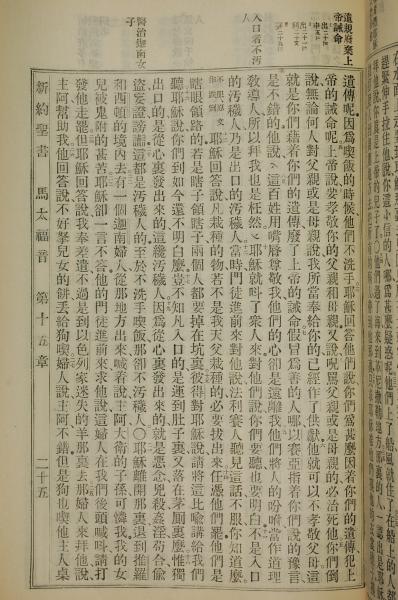 遺規廢棄上
帝誡命
遺傳呢因爲喫飯的時候他們不洗手耶穌回答他們說你們爲甚麼因着你們的遺傳犯上
帝的誡命呢上帝說要孝敬你的父親和母親又說咒罵父親或是母親的必治死他你們倒
說無論何人對父親或是母親說我所當奉給你的已經作了供獻他就可以不孝敬父母這
就是你們藉着你們的遺傳廢了上帝的誡命假冒爲善的人哪以賽亞指着你們說的豫言
是不錯的他說這百姓用嘴脣尊敬我他們的心卻是遠離我他們將人的吩咐當作道理
入口者不污
人
敎導人所以拜我也是枉然耶穌就叫了衆人來對他們說你們要聽也要明白不是入口
的污穢人乃是出口的污穢人當時門徒進前來對他說法利賽人聽見這話不服你知道麼
耶穌回答說凡栽種的物若不是我天父栽種的必要拔出來任憑他們罷他們是
瞎眼領路的若是瞎子領瞎子兩個人都要掉在坑裏彼得對耶穌說請將這比喻講給我們
聽耶穌說你們到如今還不明白麼豈不知凡入口的是運到肚子裏又落在茅厠裏麼惟獨
出口的是從心裏發出來的這纔污穢人因爲從心裏發出來的就是惡念兇殺姦淫苟合偷
醫治迦南女
子
盜妄證謗讟這都是污穢人的至於不洗手喫飯那卻不污穢人〇耶穌離開那裏退到推羅
和西頓的境內去有一個迦南婦人從那地方出來喊着說主阿大衛的子孫可憐我我的女
兒被鬼附的甚苦耶穌卻一言不答他的門徒進前來求他說這婦人在我們後頭喊呌請打
發他走罷但耶穌回答說我奉差遣不過是到以色列家迷失的羊那裏去那婦人來拜他說
主阿幫助我他回答說不好拏兒女的餅丟給狗喫婦人說主阿不錯但是狗也喫他主人桌
新約聖書 馬太福音 第十五章 二十五